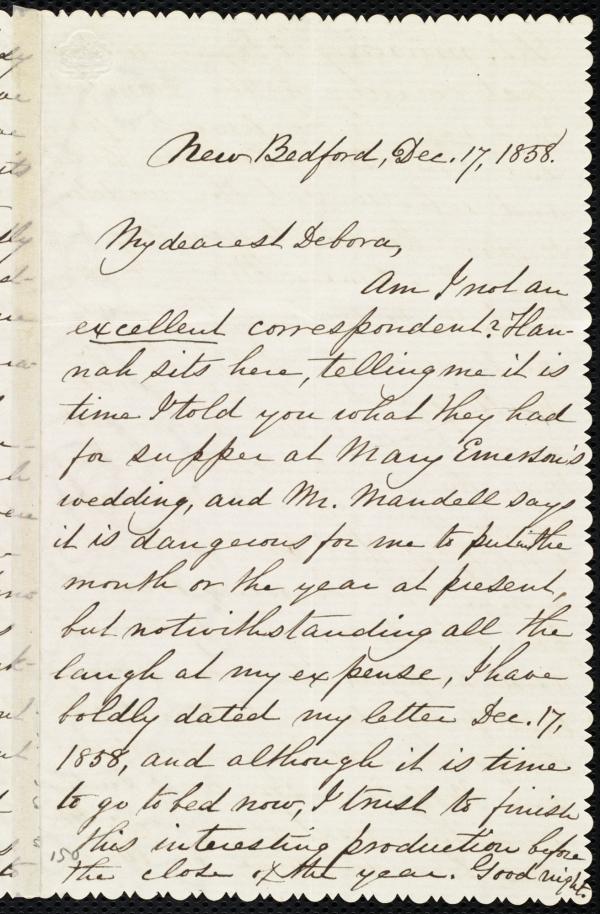 New Bedford, Dec. 17, 1858.
My dearest Debora,
Am I not an
excellent correspondent? Han-
nah sits here, telling me it is
time I told you what they had
for supper at Mary Emerson's
wedding, and Mr. Mandell says
it is dangerous for me to put in the
month or the year at present,
but notwithstanding all the
laugh at my expense, I have
boldly dated my letter Dec. 17,
1858, and although it is time
to go to bed now, I trust to finish
this interesting production before
the close of the year. Good night.
150